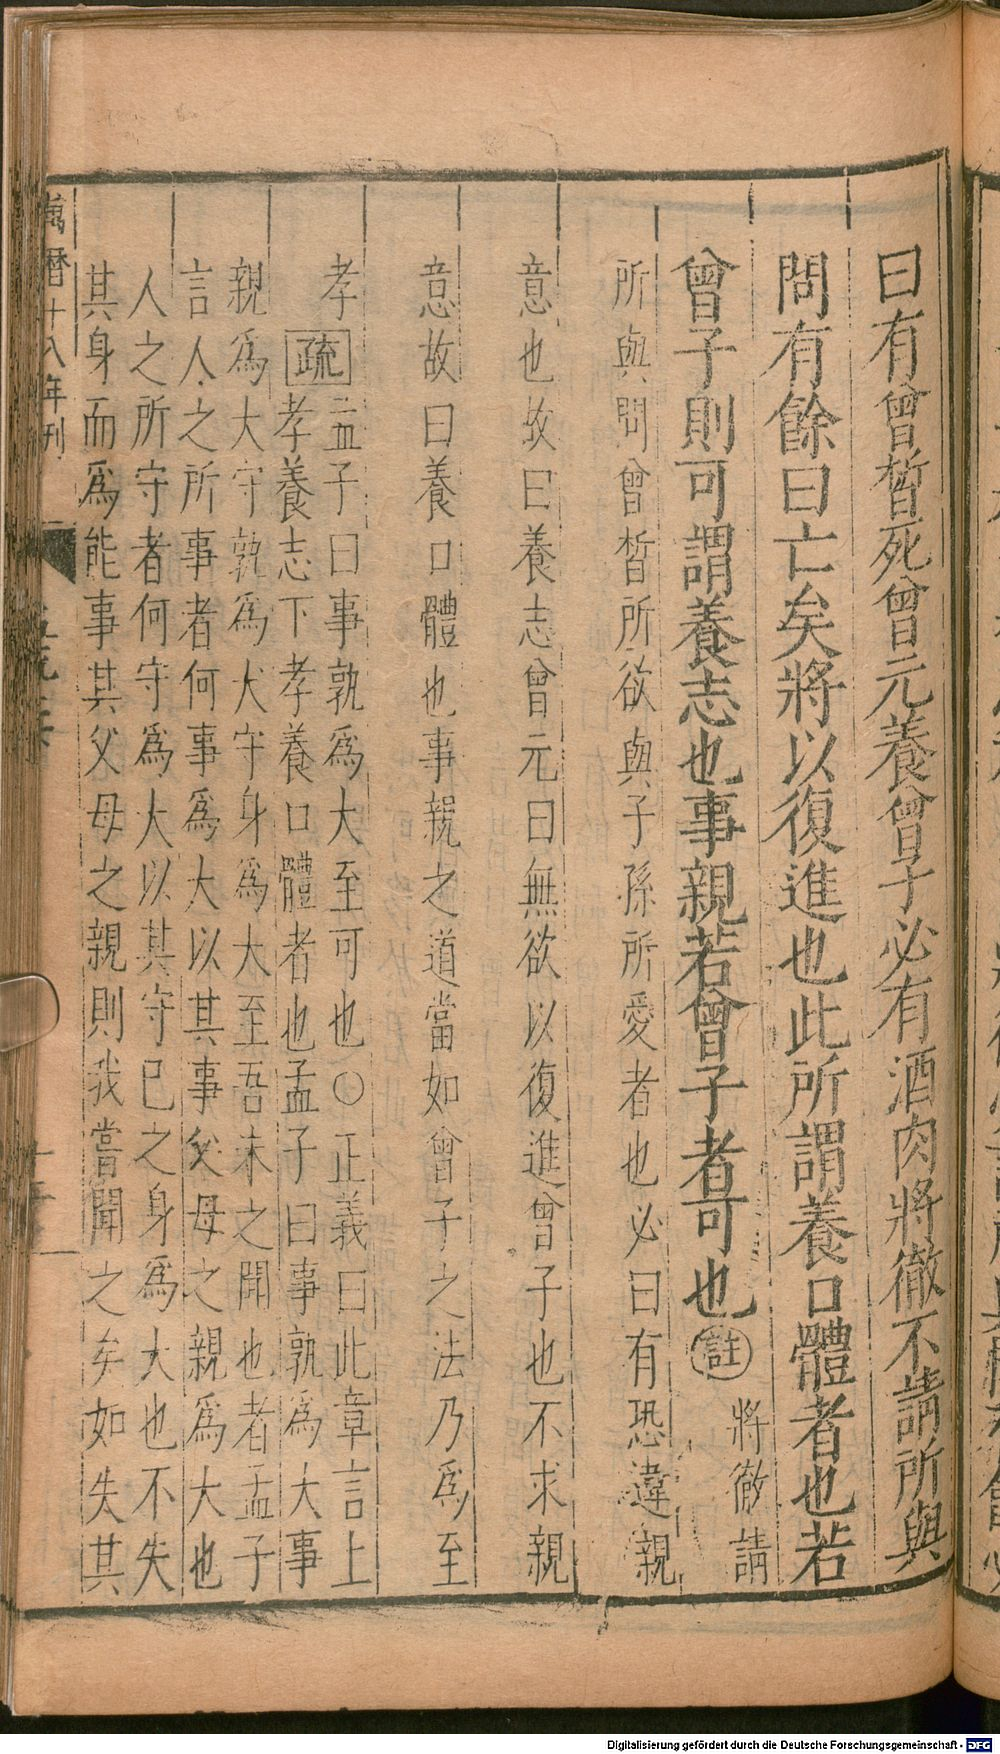 曰有曾晳死曾元養曾子必有酒肉將徹不請所與
問有餘曰亡矣將以復進也此所謂養口體者也若
曾子則可謂養志也事親若曾子者可也註將徹請
所與問曾晳所欲與子孫所愛者也必曰有恐違親
意也故曰養志曾元曰無欲以復進曾子也不求親
意故曰養口體也事親之道當如曾子之法乃爲至
孝
疏孟子曰事孰爲大至可也○正義曰此章言上
孝養志下孝養口體者也孟子曰事孰爲大事
親爲大守孰爲大守身爲大至吾未之聞也者孟子
言人之所事者何事爲大以其事父母之親爲大也
人之所守者何守爲大以其守己之身爲大也不失
其身而爲能事其父母之親則我當聞之矣如失其
萬曆十八年刊
Digitalisierung gefördert durch die Deutsche Forschungsgemeinschaft - DFG